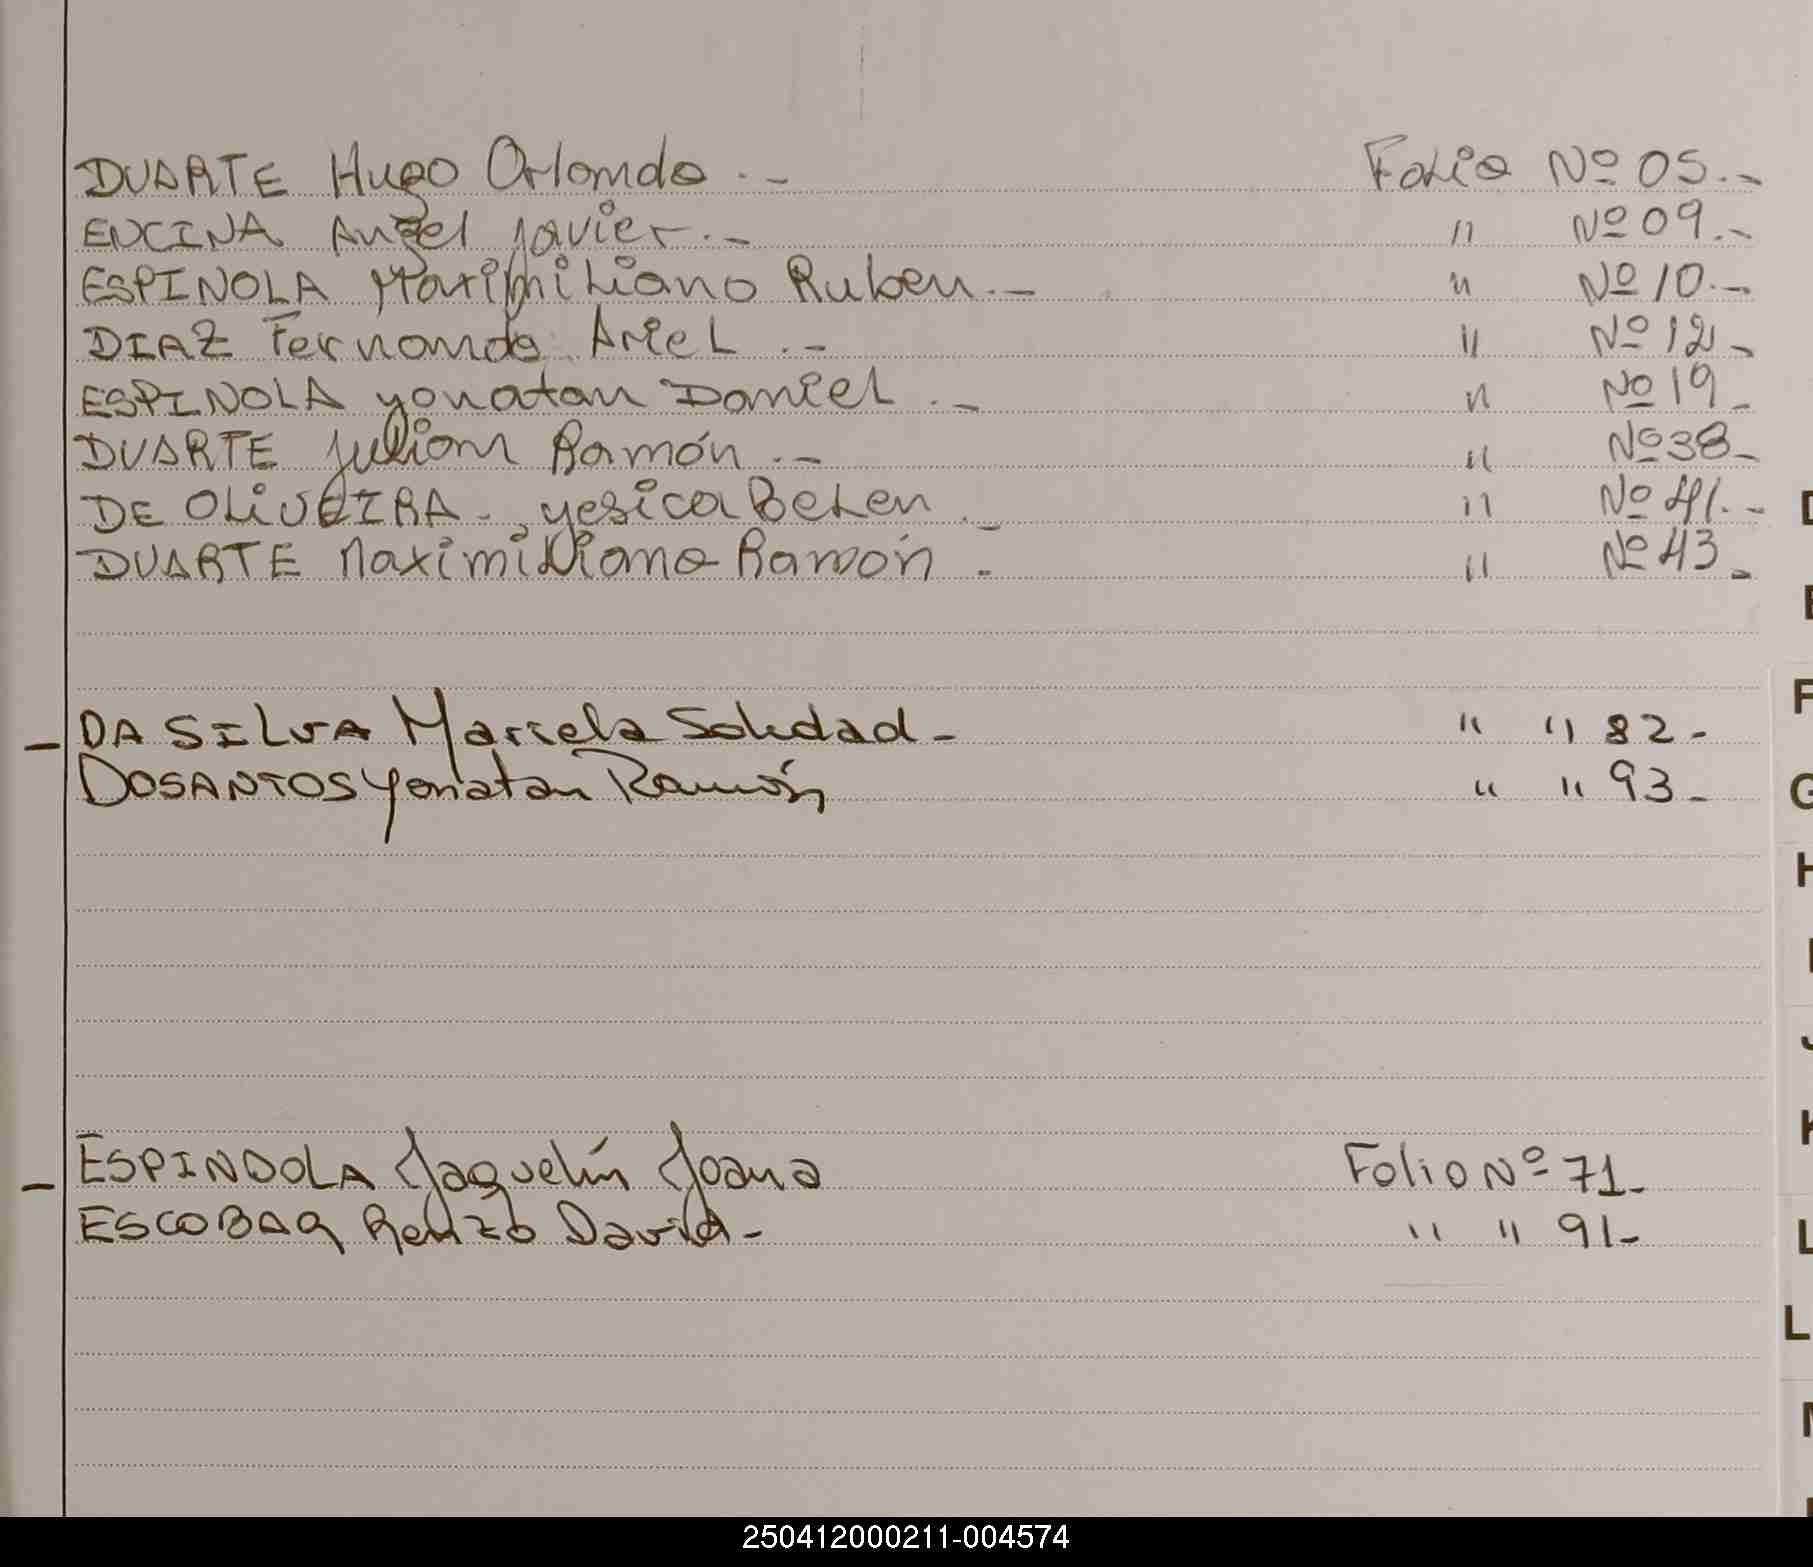 DUARTE Hugo Orlando .- Folio Nº 05.-
ENCINA Angel Javier.- " Nº 09.-
ESPINOLA Maximiliano Ruben.- " Nº 10.-
DIAZ Fernando Ariel .- " Nº 12.-
ESPINOLA yonatan Daniel .- " Nº 19-
DUARTE Julian Ramón .- " Nº 38-
DE OLIVEIRA. , yesica Belen .- " Nº 41.-
DUARTE Maximiliano Ramón - " Nº 43-
- DA SILVA Marcela Soledad - " " 82-
DOSANTOS yonatan Ramón " " 93-
- ESPINDOLA Jaquelín Joana Folio Nº 71-
ESCOBAR Renzo David- " " 91-
D
E
F
G
H
I
J
K
L
L
M
250412000211-004574